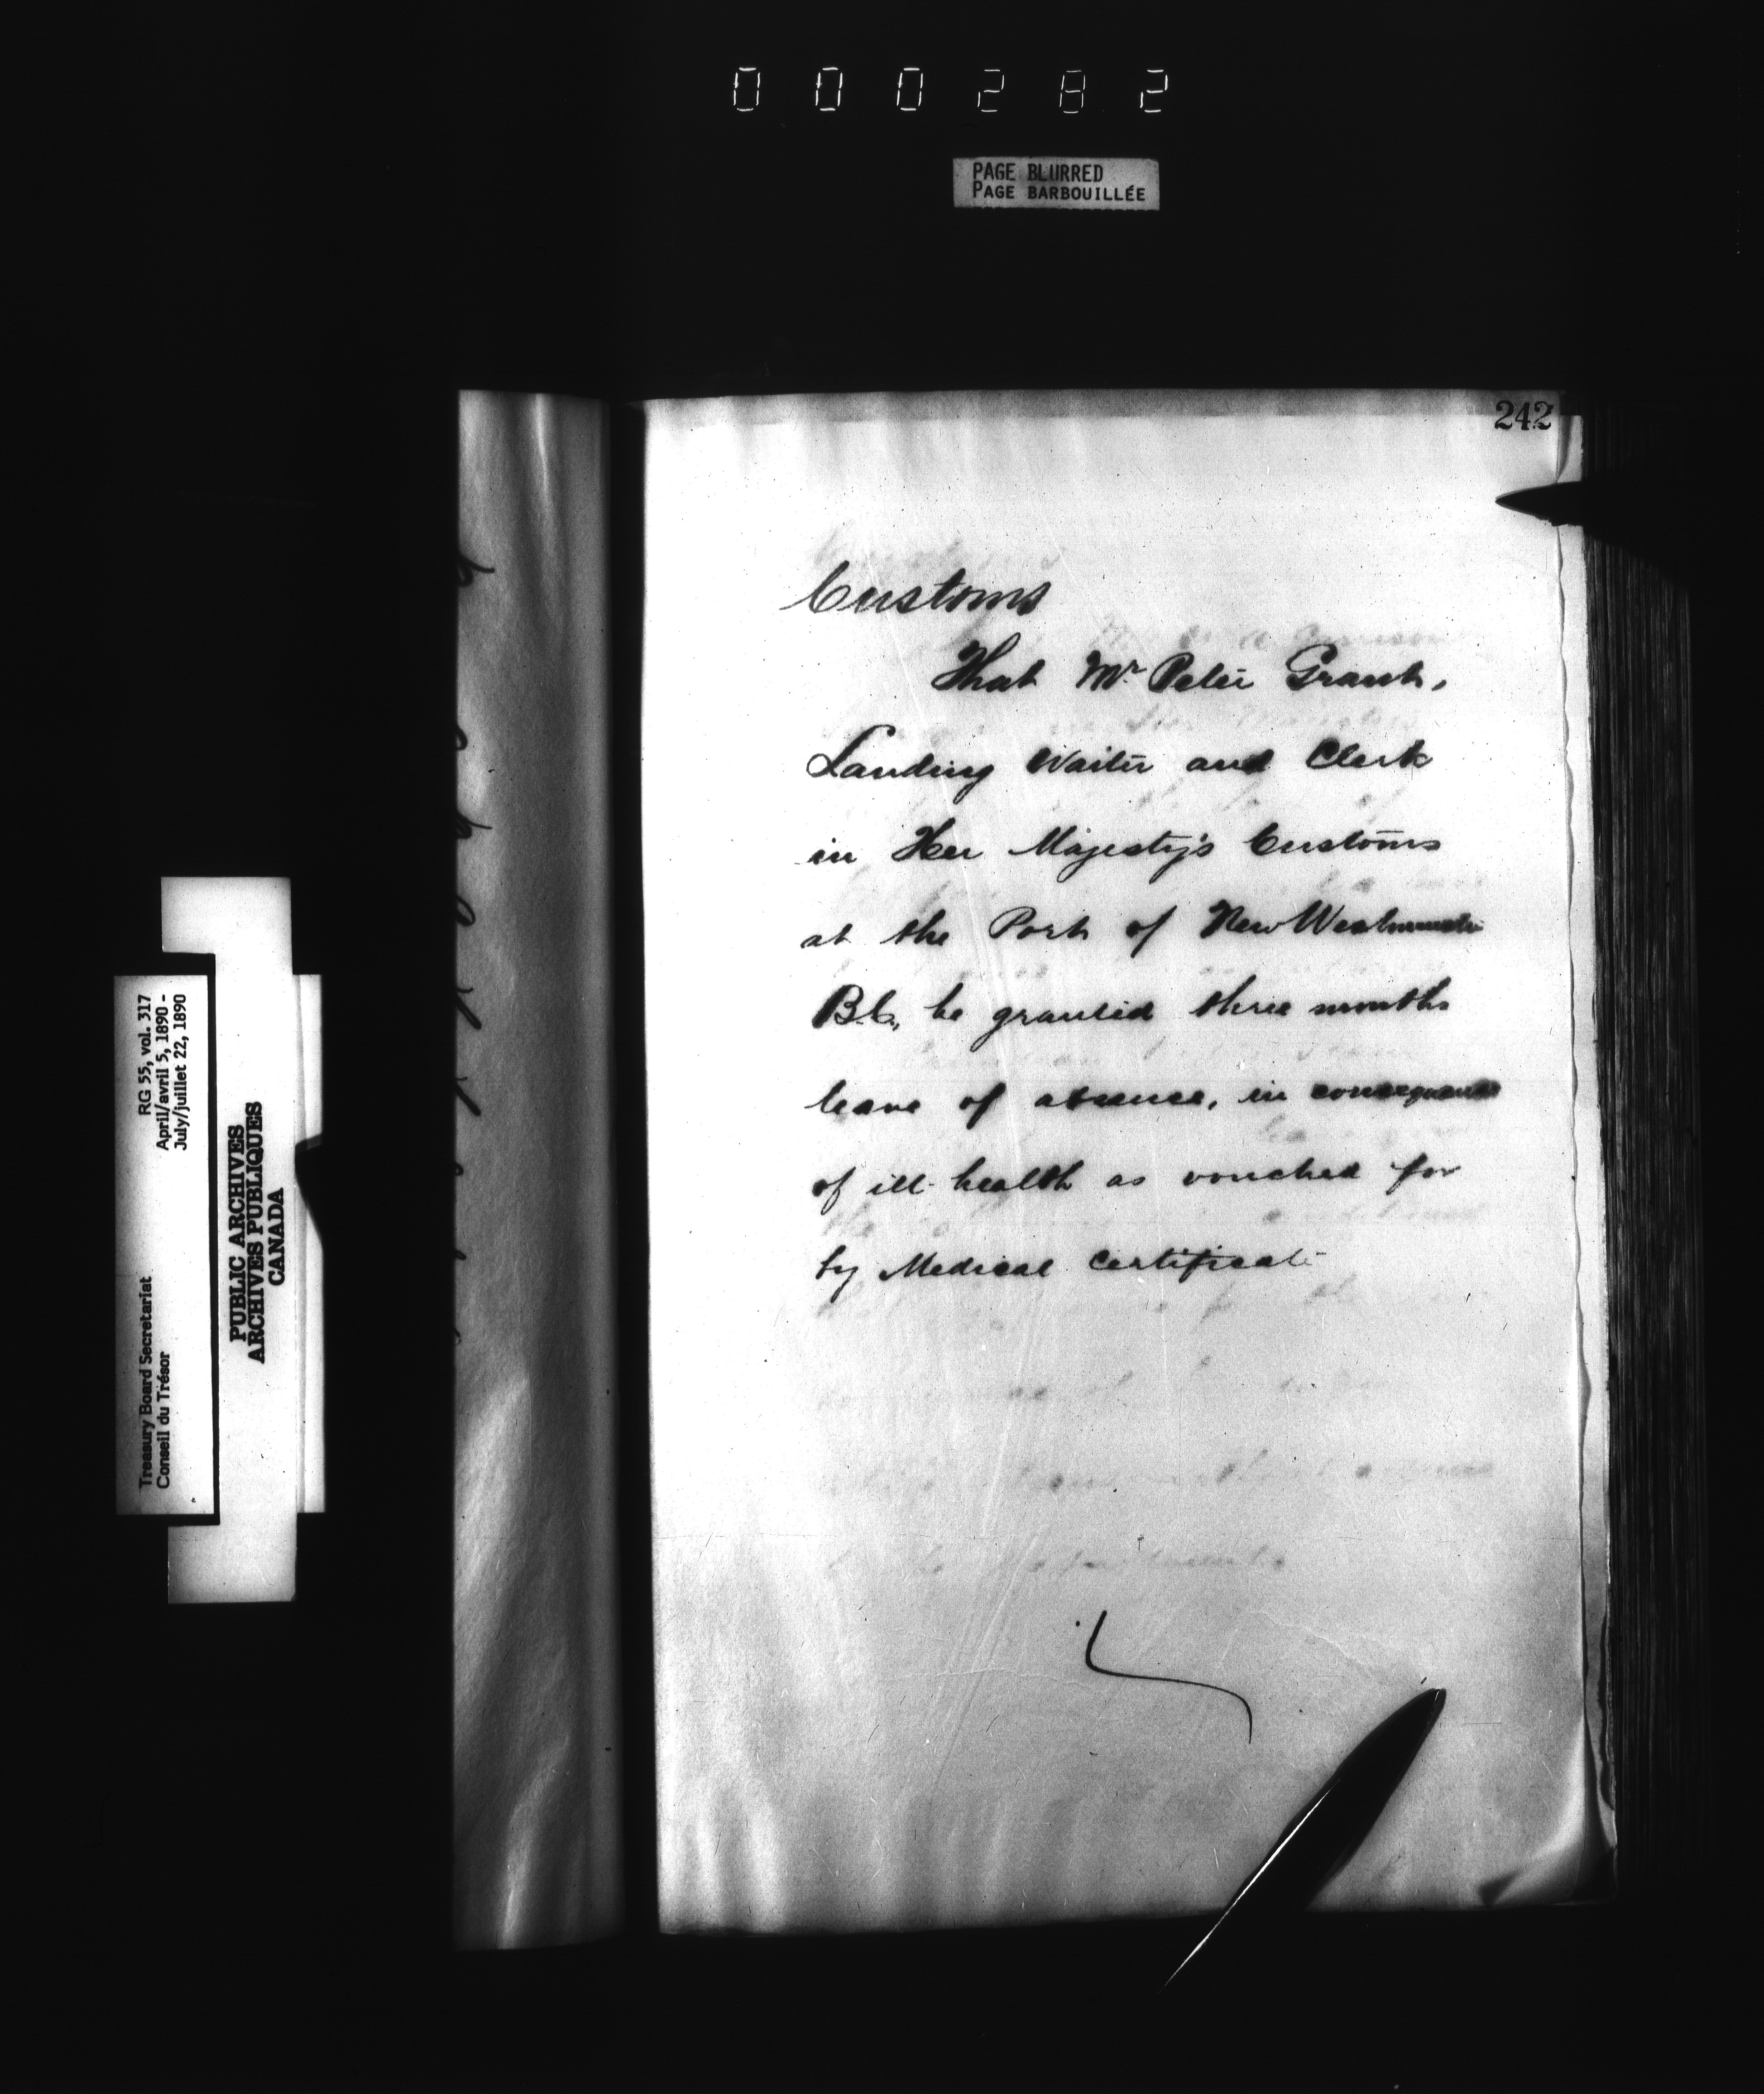 000282
PAGE BLURRED
PAGE BARBOUILLÉE
242
Customs
That Mr. Peter Grant,
Landing Waiter and Clerk
in Her Majesty's Customs
at the Port of New Westminster
B.C., be granted three months
leave of absence, in consequence
of ill-health as vouched for
by Medical Certificate
RG 55, vol. 317
April/avril 5, 1890 -
July/juillet 22, 1890
Treasury Board Secretariat
Conseil du Trésor
PUBLIC ARCHIVES
ARCHIVES PUBLIQUES
CANADA